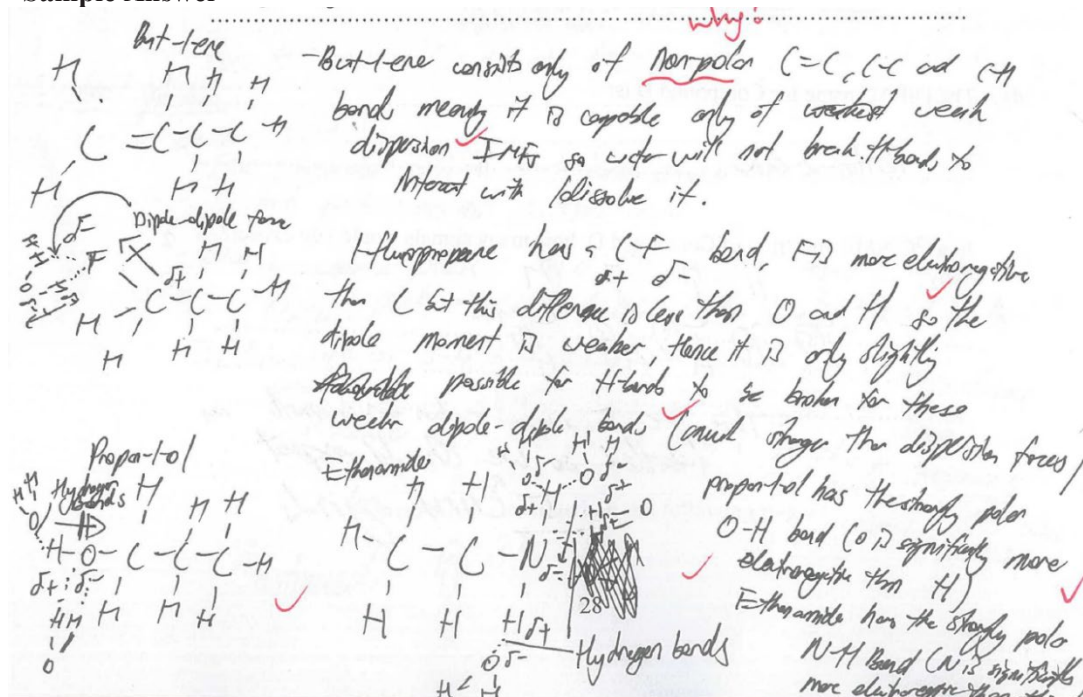 Sample Answer
why?
But-1-ene
-But-1-ene consists only of nonpolar C=C, C-C and C-H
bonds meaning it is capable only of weak
dispersion IMFs so water will not break H-bonds to
interact with / dissolve it.
H H H H
C =C-C-C-H
H H H
Dipole-dipole force
1-fluoropropane has a C-F bond, F is more electronegative
δ+ δ-
than C but this difference is less than O and H so the
dipole moment is weaker, hence it is only slightly
possible for H-bonds to be broken for these
weaker dipole-dipole bonds (much stronger than dispersion forces)
δ-
F H H
δ+
C-C-C-H
H H H
Propan-1-ol
Hydrogen bonds
H H H
H-O-C-C-C-H
δ+ δ-
H H H
Ethanamide
H H
H-C-C-N
δ-
H H H δ+
O δ-
H H
O
28
Hydrogen bonds
propan-1-ol has the strongly polar
O-H bond (O is significantly more
electronegative than H)
Ethanamide has the strongly polar
N-H Bond (N is significantly
more electronegative than